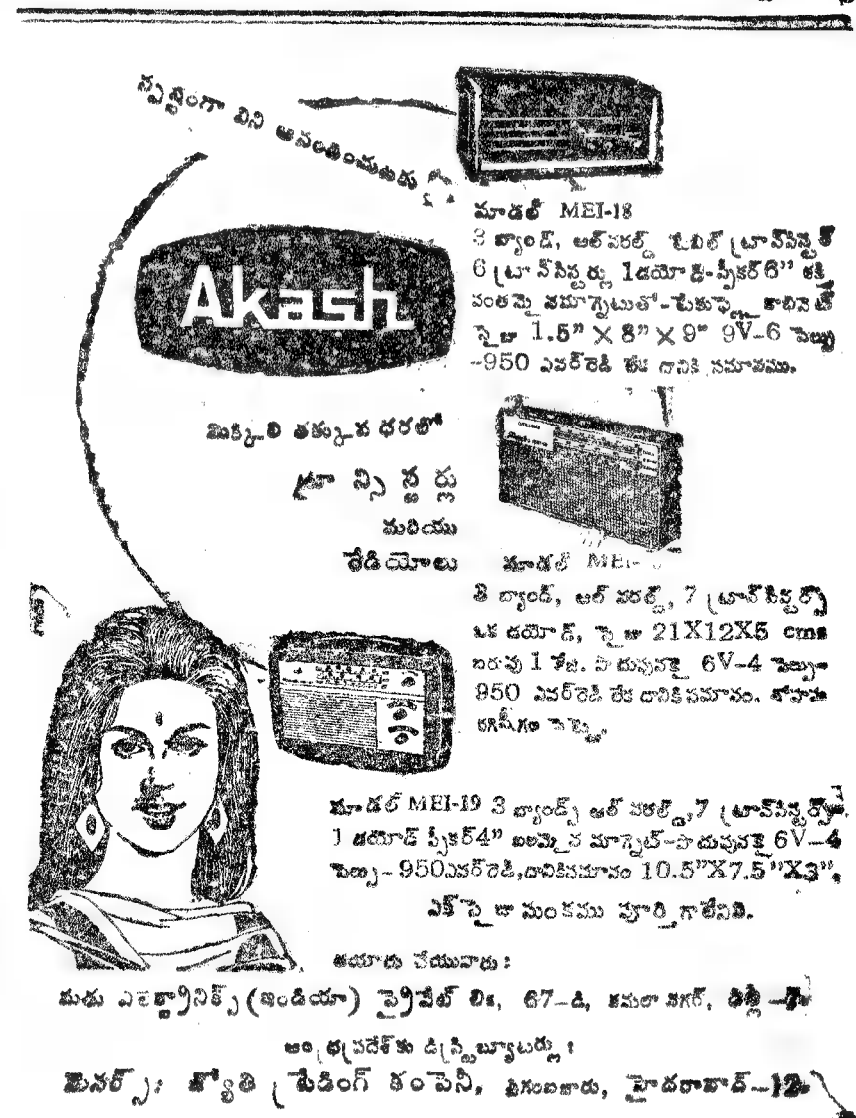 స్పష్టంగా విని ఆనందించుటకు
Akash
మిక్కిలి తక్కువ ధరలో
ట్రాన్సిస్టర్లు
మరియు
రేడియోలు
మాడల్ MEI-18
3 బ్యాండ్, ఆల్ వరల్డ్ టేబిల్ ట్రాన్‌సిస్టర్
6 ట్రాన్‌సిస్టర్లు 1డయోడ్-స్పీకర్ 6” శక్తి
వంతమైన మాగ్నెటుతో- కాబినెట్
సైజు 1.5” X 8” X 9” 9V-6 సెల్సు
-950 ఎవర్‌రెడి లేక దానికి సమానము.
మాడల్ MEI-
3 బ్యాండ్, ఆల్ వరల్డ్, 7 ట్రాన్‌సిస్టర్స్
ఒక డయోడ్, సైజు 21X12X5 cms
బరువు 1 కేజి. వాడువునకై 6V-4 సెల్సు-
950 ఎవర్‌రెడి లేక దానికి సమానం.
మాడల్ MEI-19 3 బ్యాండ్స్ ఆల్ వరల్డ్, 7 ట్రాన్‌సిస్టర్స్
1 డయోడ్ స్పీకర్ 4” బలమైన మాగ్నెట్-వాడువునకై 6V-4
సెల్సు- 950 ఎవర్‌రెడి, దానికి సమానం 10.5”X7.5”X3”.
ఎక్సైజు సుంకము పూర్తిగా లేనివి.
తయారు చేయువారు :
మధు ఎలక్ట్రానిక్స్ (ఇండియా) ప్రైవేట్ లి., 67-డి, కమలా నగర్, ఢిల్లీ -7.
ఆంధ్రప్రదేశ్‌కు డిస్ట్రిబ్యూటర్లు :
మెసర్స్: జ్యోతి ట్రేడింగ్ కంపెనీ, హైదరాబాద్-12.